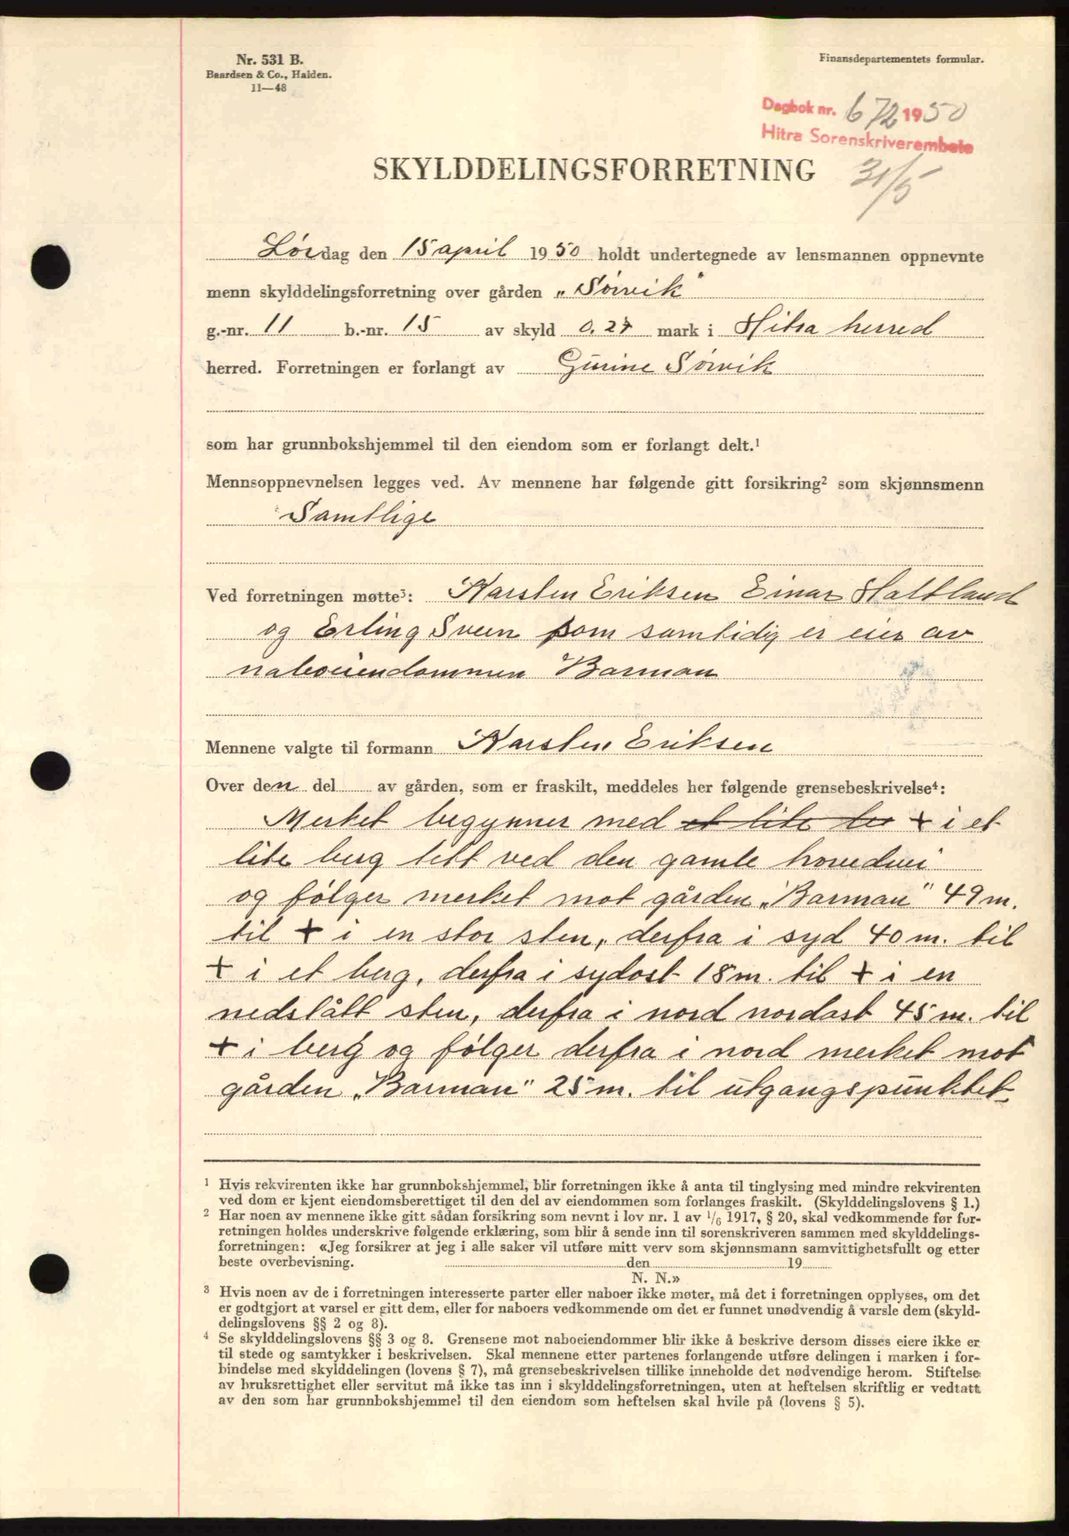 Nr. 531 B.
Baardsen & Co., Halden.
11—48
Finansdepartementets formular.
Dagbok nr. 672 1950
Hitra Sorenskriverembete
31/5
SKYLDDELINGSFORRETNING
Lørdag den 15 april 1950 holdt undertegnede av lensmannen oppnevnte
menn skylddelingsforretning over gården „Sørvik"
g.-nr. 11 b.-nr. 15 av skyld 0.27 mark i Hitra herred
herred. Forretningen er forlangt av Gurine Sørvik
som har grunnbokshjemmel til den eiendom som er forlangt delt.¹
Mennsoppnevnelsen legges ved. Av mennene har følgende gitt forsikring² som skjønnsmenn
Samtlige
Ved forretningen møtte³: Karsten Eriksen Einar Haltland
og Erling Sveen som samtidig er eier av
naboeiendommen Barman
Mennene valgte til formann Karsten Eriksen
Over den del av gården, som er fraskilt, meddeles her følgende grensebeskrivelse⁴:
Merket begynner med et lite + i et
lite berg tett ved den gamle hovedvei
og følger merket mot gården „Barman" 49 m.
til + i en stor sten, derfra i syd 40 m. til
+ i et berg, derfra i sydost 18 m. til + i en
nedslått sten, derfra i nord nordost 45 m. til
+ i berg og følger derfra i nord merket mot
gården „Barman" 25 m. til utgangspunktet.
¹ Hvis rekvirenten ikke har grunnbokshjemmel, blir forretningen ikke å anta til tinglysing med mindre rekvirenten
ved dom er kjent eiendomsberettiget til den del av eiendommen som forlanges fraskilt. (Skylddelingslovens § 1.)
² Har noen av mennene ikke gitt sådan forsikring som nevnt i lov nr. 1 av 1/6 1917, § 20, skal vedkommende før for-
retningen holdes underskrive følgende erklæring, som blir å sende inn til sorenskriveren sammen med skylddelings-
forretningen: «Jeg forsikrer at jeg i alle saker vil utføre mitt verv som skjønnsmann samvittighetsfullt og etter
beste overbevisning. den 19
N. N.»
³ Hvis noen av de i forretningen interesserte parter eller naboer ikke møter, må det i forretningen opplyses, om det
er godtgjort at varsel er gitt dem, eller for naboers vedkommende om det er funnet unødvendig å varsle dem (skyld-
delingslovens §§ 2 og 8).
⁴ Se skylddelingslovens §§ 3 og 8. Grensene mot naboeiendommer blir ikke å beskrive dersom disses eiere ikke er
til stede og samtykker i beskrivelsen. Skal mennene etter partenes forlangende utføre delingen i marken i for-
bindelse med skylddelingen (lovens § 7), må grensebeskrivelsen tillike inneholde det nødvendige herom. Stiftelse
av bruksrettighet eller servitut må ikke tas inn i skylddelingsforretningen, uten at heftelsen skriftlig er vedtatt
av den som har grunnbokshjemmel til den eiendom som heftelsen skal hvile på (lovens § 5).